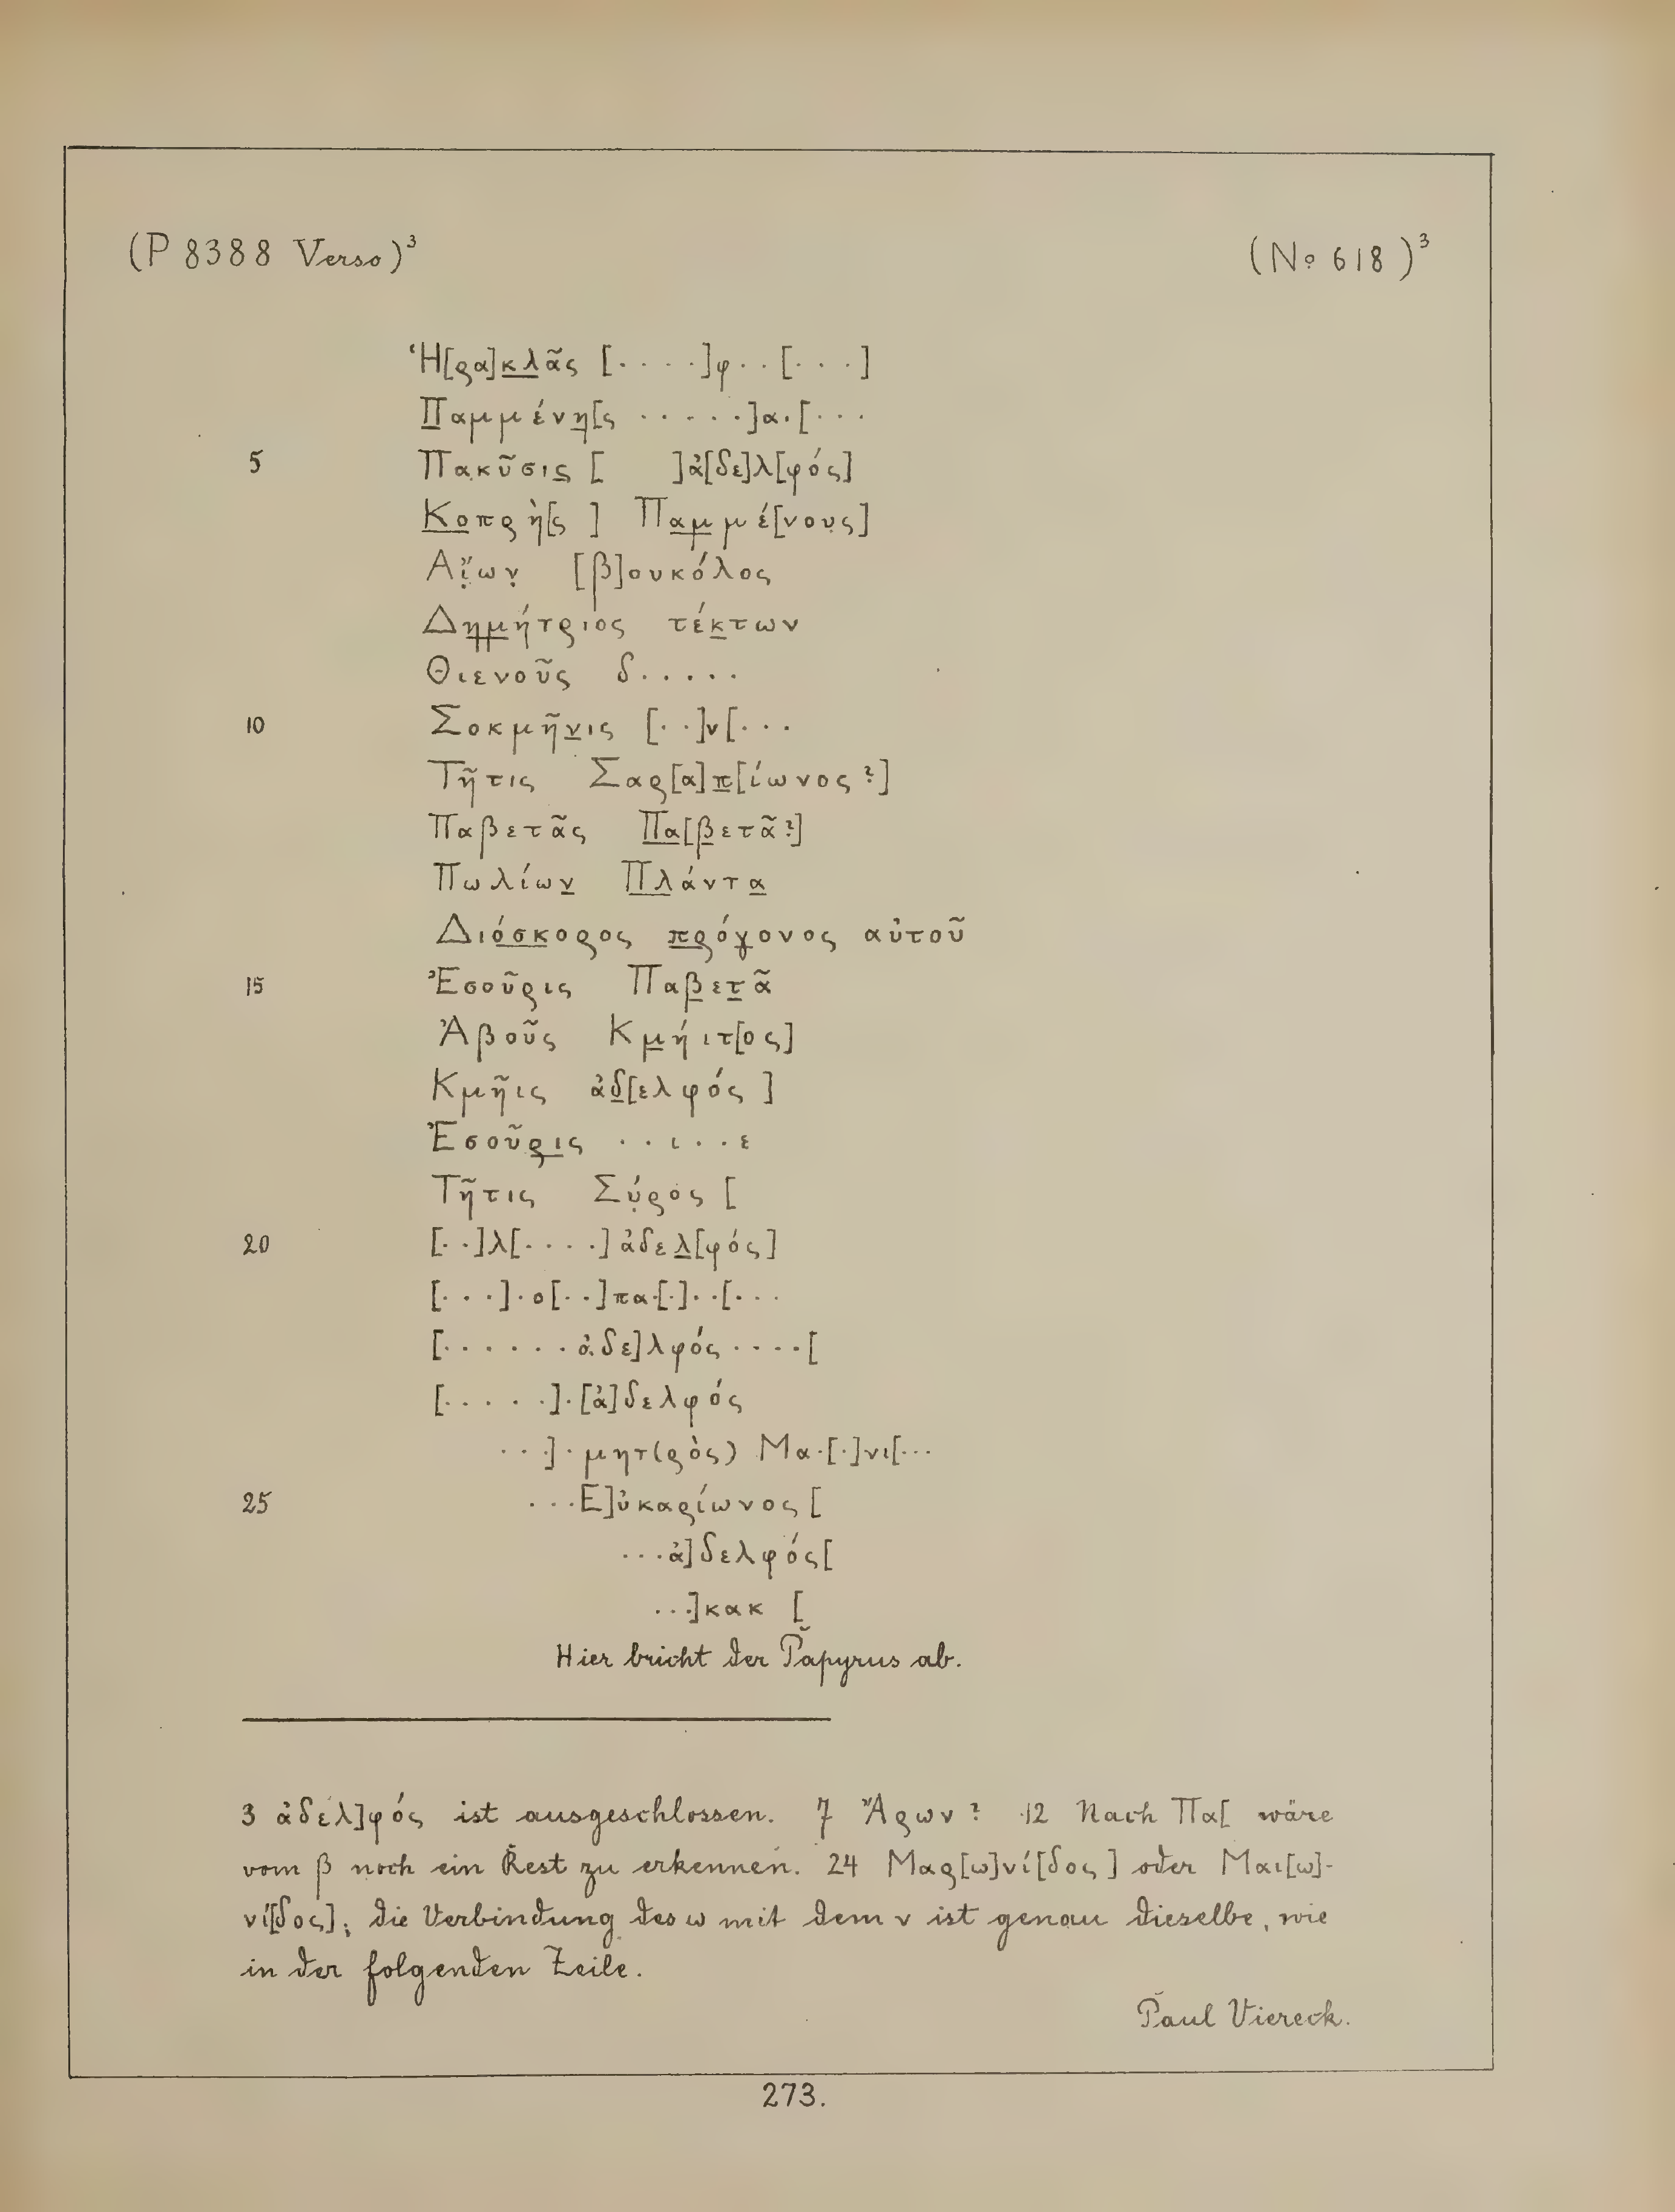 (P 8388 Verso)³ (No 618)³
Ἡ[ρα]κλᾶς [· · · ·]φ · · [· · ·]
Παμμένη[ς · · · · ·]α · [· · ·
5 Πακῦσις [ ]ἀ[δε]λ[φός]
Κοπρὴ[ς ] Παμμέ[νους]
Αἴ̣ων̣ [β]ουκόλος
Δημήτριος τέκτων
Θιενοῦς δ · · · · ·
10 Σοκμῆνις [· ·]ν[· · ·
Τῆτις Σαρ[α]π[ίωνος ?]
Παβετᾶς Πα[βετᾶ?]
Πωλίων Πλάντα
Διόσκορος πρόγονος αὐτοῦ
15 Ἐσοῦρις Παβετᾶ
Ἀβοῦς Κμήιτ[ος]
Κμῆις ἀδ[ελφός ]
Ἐσοῦρις · · ι · · ε
Τῆτις Σύ̣ρος [
20 [· ·]λ[· · · ·] ἀδελ[φός]
[· · ·] · ο[· ·]πα·[·]· ·[· · ·
[· · · · · · ἀδε]λφός · · · · [
[· · · · ·] · [ἀ]δελφός
· · ·] · μητ(ρὸς) Μα·[·]νι[· · ·
25 · · · Ε]ὐκαρίωνος [
· · · ἀ]δελφός[
· · ·]κακ [
Hier bricht der Papyrus ab.
3 ἀδελ]φός ist ausgeschlossen. 7 Ἄρων ? 12 Nach Πα[ wäre
vom β noch ein Rest zu erkennen. 24 Μαρ[ω]νί[δος] oder Μαι[ω]-
νί[δος]; die Verbindung des ω mit dem ν ist genau dieselbe, wie
in der folgenden Zeile.
Paul Viereck.
273.